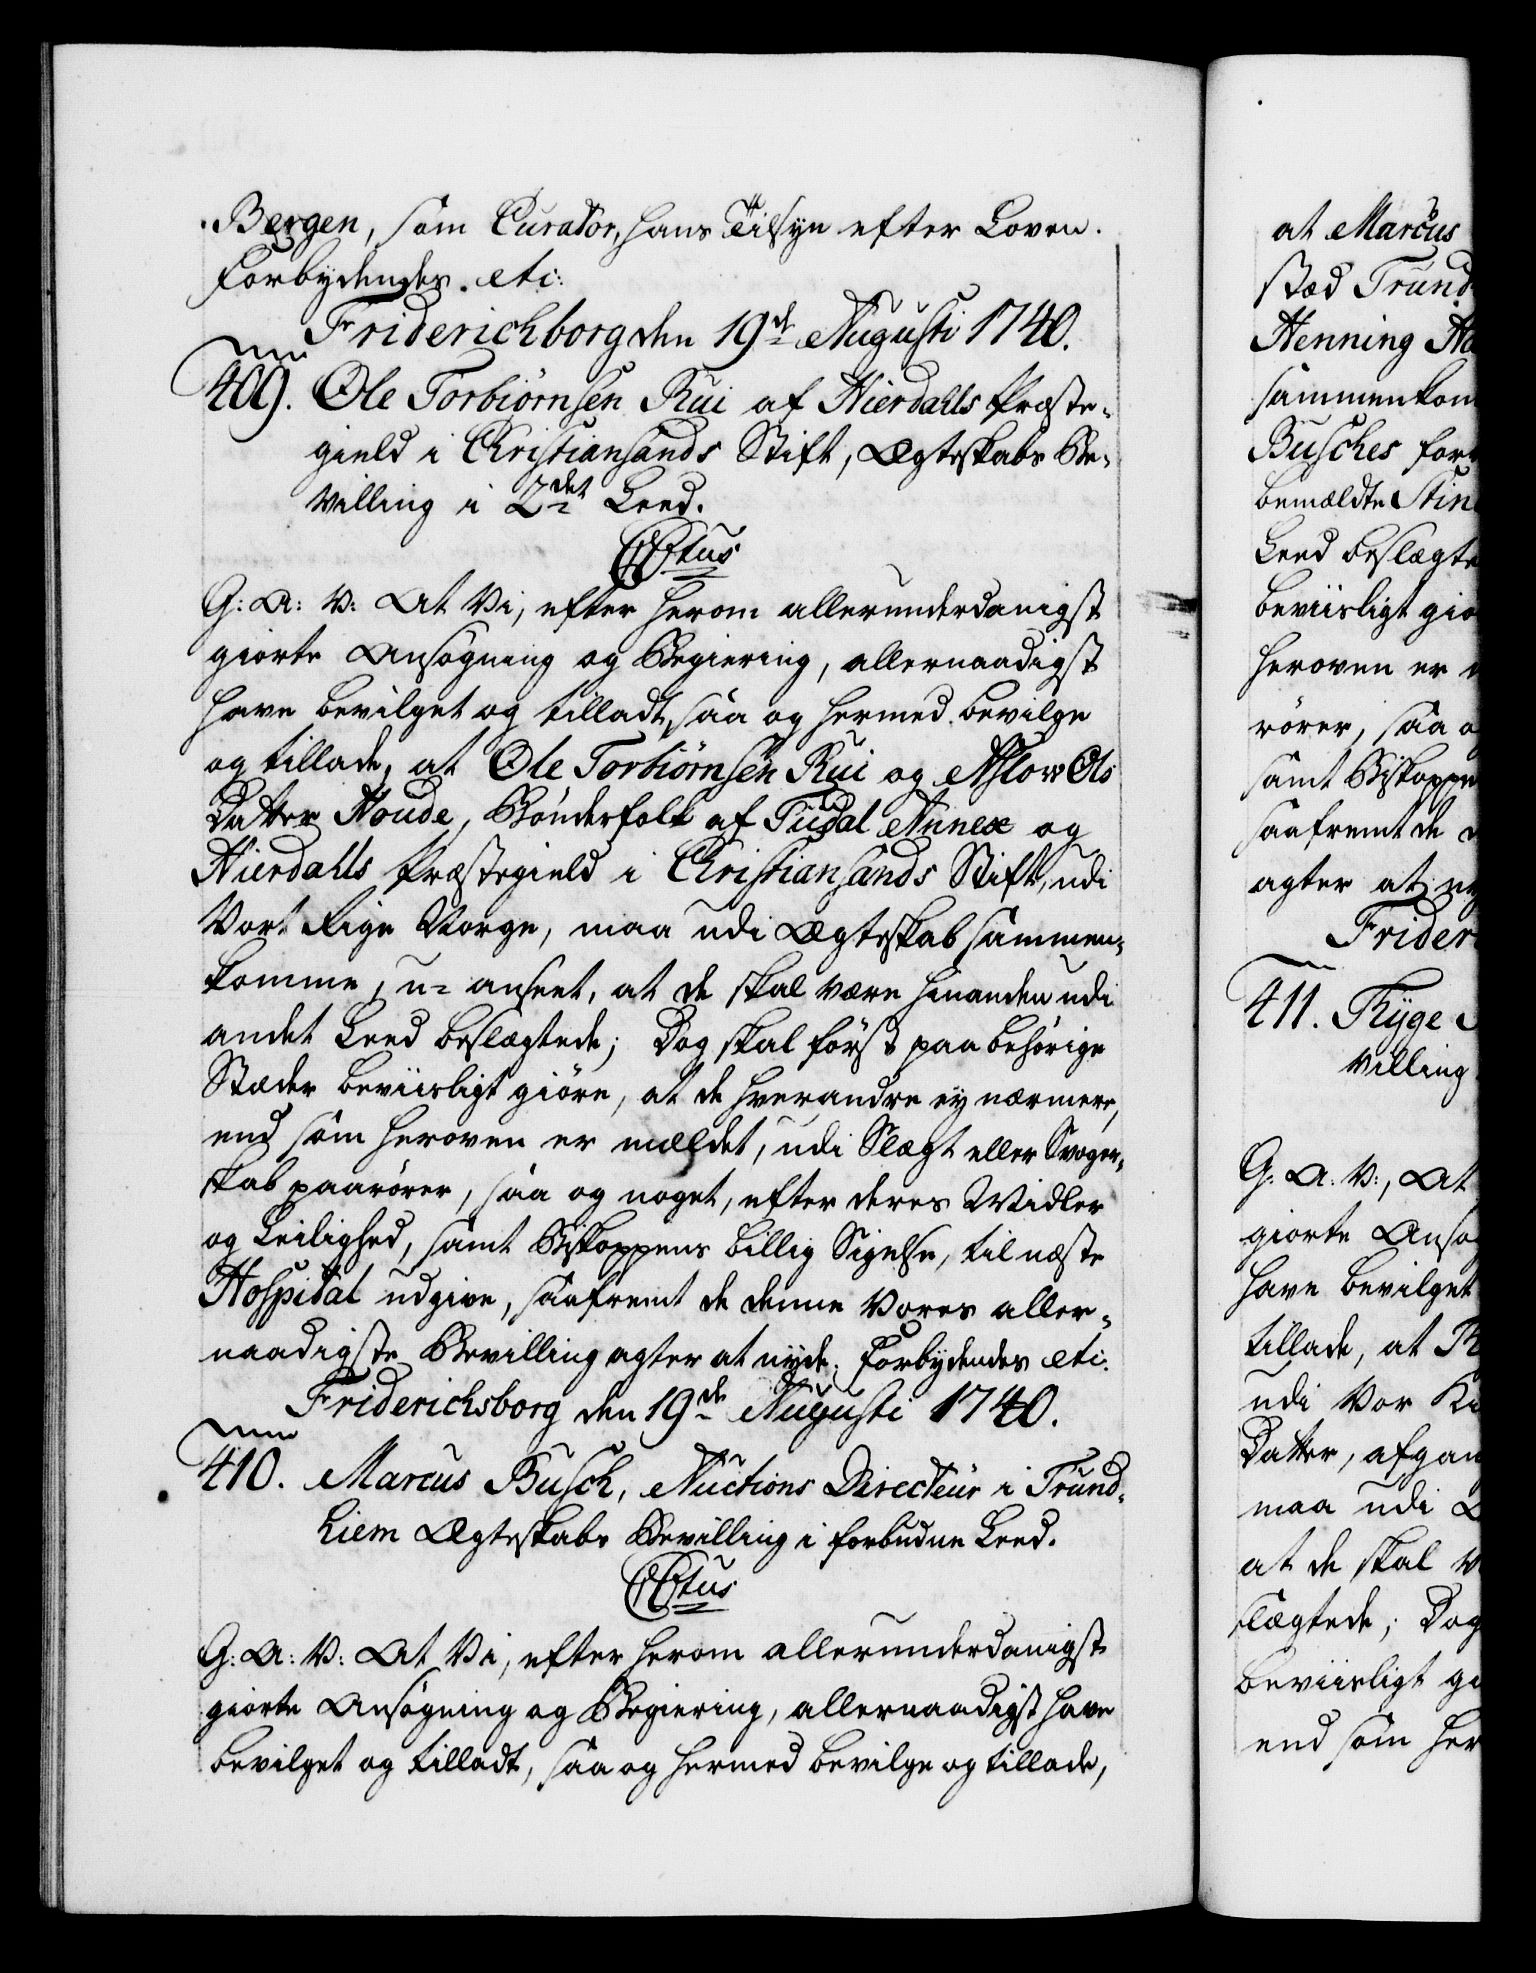 Bergen, som Curator, hans Tilsyn efter Loven.
Forbydendes. etc:
Friderichborg den 19de Augusti 1740.
409. Ole Torbiørnsen Rui af Hierdahls Præste-
gield i Christiansands Stift, Ægteskabs Be-
villing i 2det Leed.
CCtus
G: A: V: At Vi, efter herom allerunderdanigst
giorte Ansøgning og Begiering, allernaadigst
have bevilget og tilladt, saa og hermed bevilge
og tillade, at Ole Torbiørnsen Rui og Aslow Ols
Datter Houde, Bønderfolk af Tudal Annex og
Hierdahls Præstegield i Christiansands Stift, udi
Vort Rige Norge, maa udi Ægteskab sammen-
komme, u- anseet, at de skal være hinanden udi
andet Leed beslægtede; Dog skal først paa behørige
Stæder beviisligt giøre, at de hverandre ey nærmere,
end som heroven er mældet, udi Slægt eller Svoger-
skab paarører, saa og noget, efter deres Midler
og Leilighed, samt Biskoppens billig Sigelse, til næste
Hospital udgive, saafremt de denne Vores aller-
naadigste Bevilling agter at nyde. Forbydendes etc.
Friderichsborg den 19de Augusti 1740.
410. Marcus Busch, Auctions Directeur i Trund-
hiem Ægteskabs Bevilling i forbudne Leed.
CCtus
G: A: V: At Vi, efter herom allerunderdanigst
giorte Ansøgning og Begiering, allernaadigst have
bevilget og tilladt, saa og hermed bevilge og tillade,
at Marcus
stæd Trund
Henning
sammenkom
Busches for
bemældte Stin
Leed beslægte
beviisligt giø
heroven er
rører, saa o
samt Biskoppe
saafremt de
agter at ny
Frider
411. Thyge
villing
G: A: V:, At
giorte Ansø
have bevilget
tillade, at
udi Vor Ki
Datter, afgan
maa udi
at de skal
slægtede; Dog
beviisligt gi
end som her